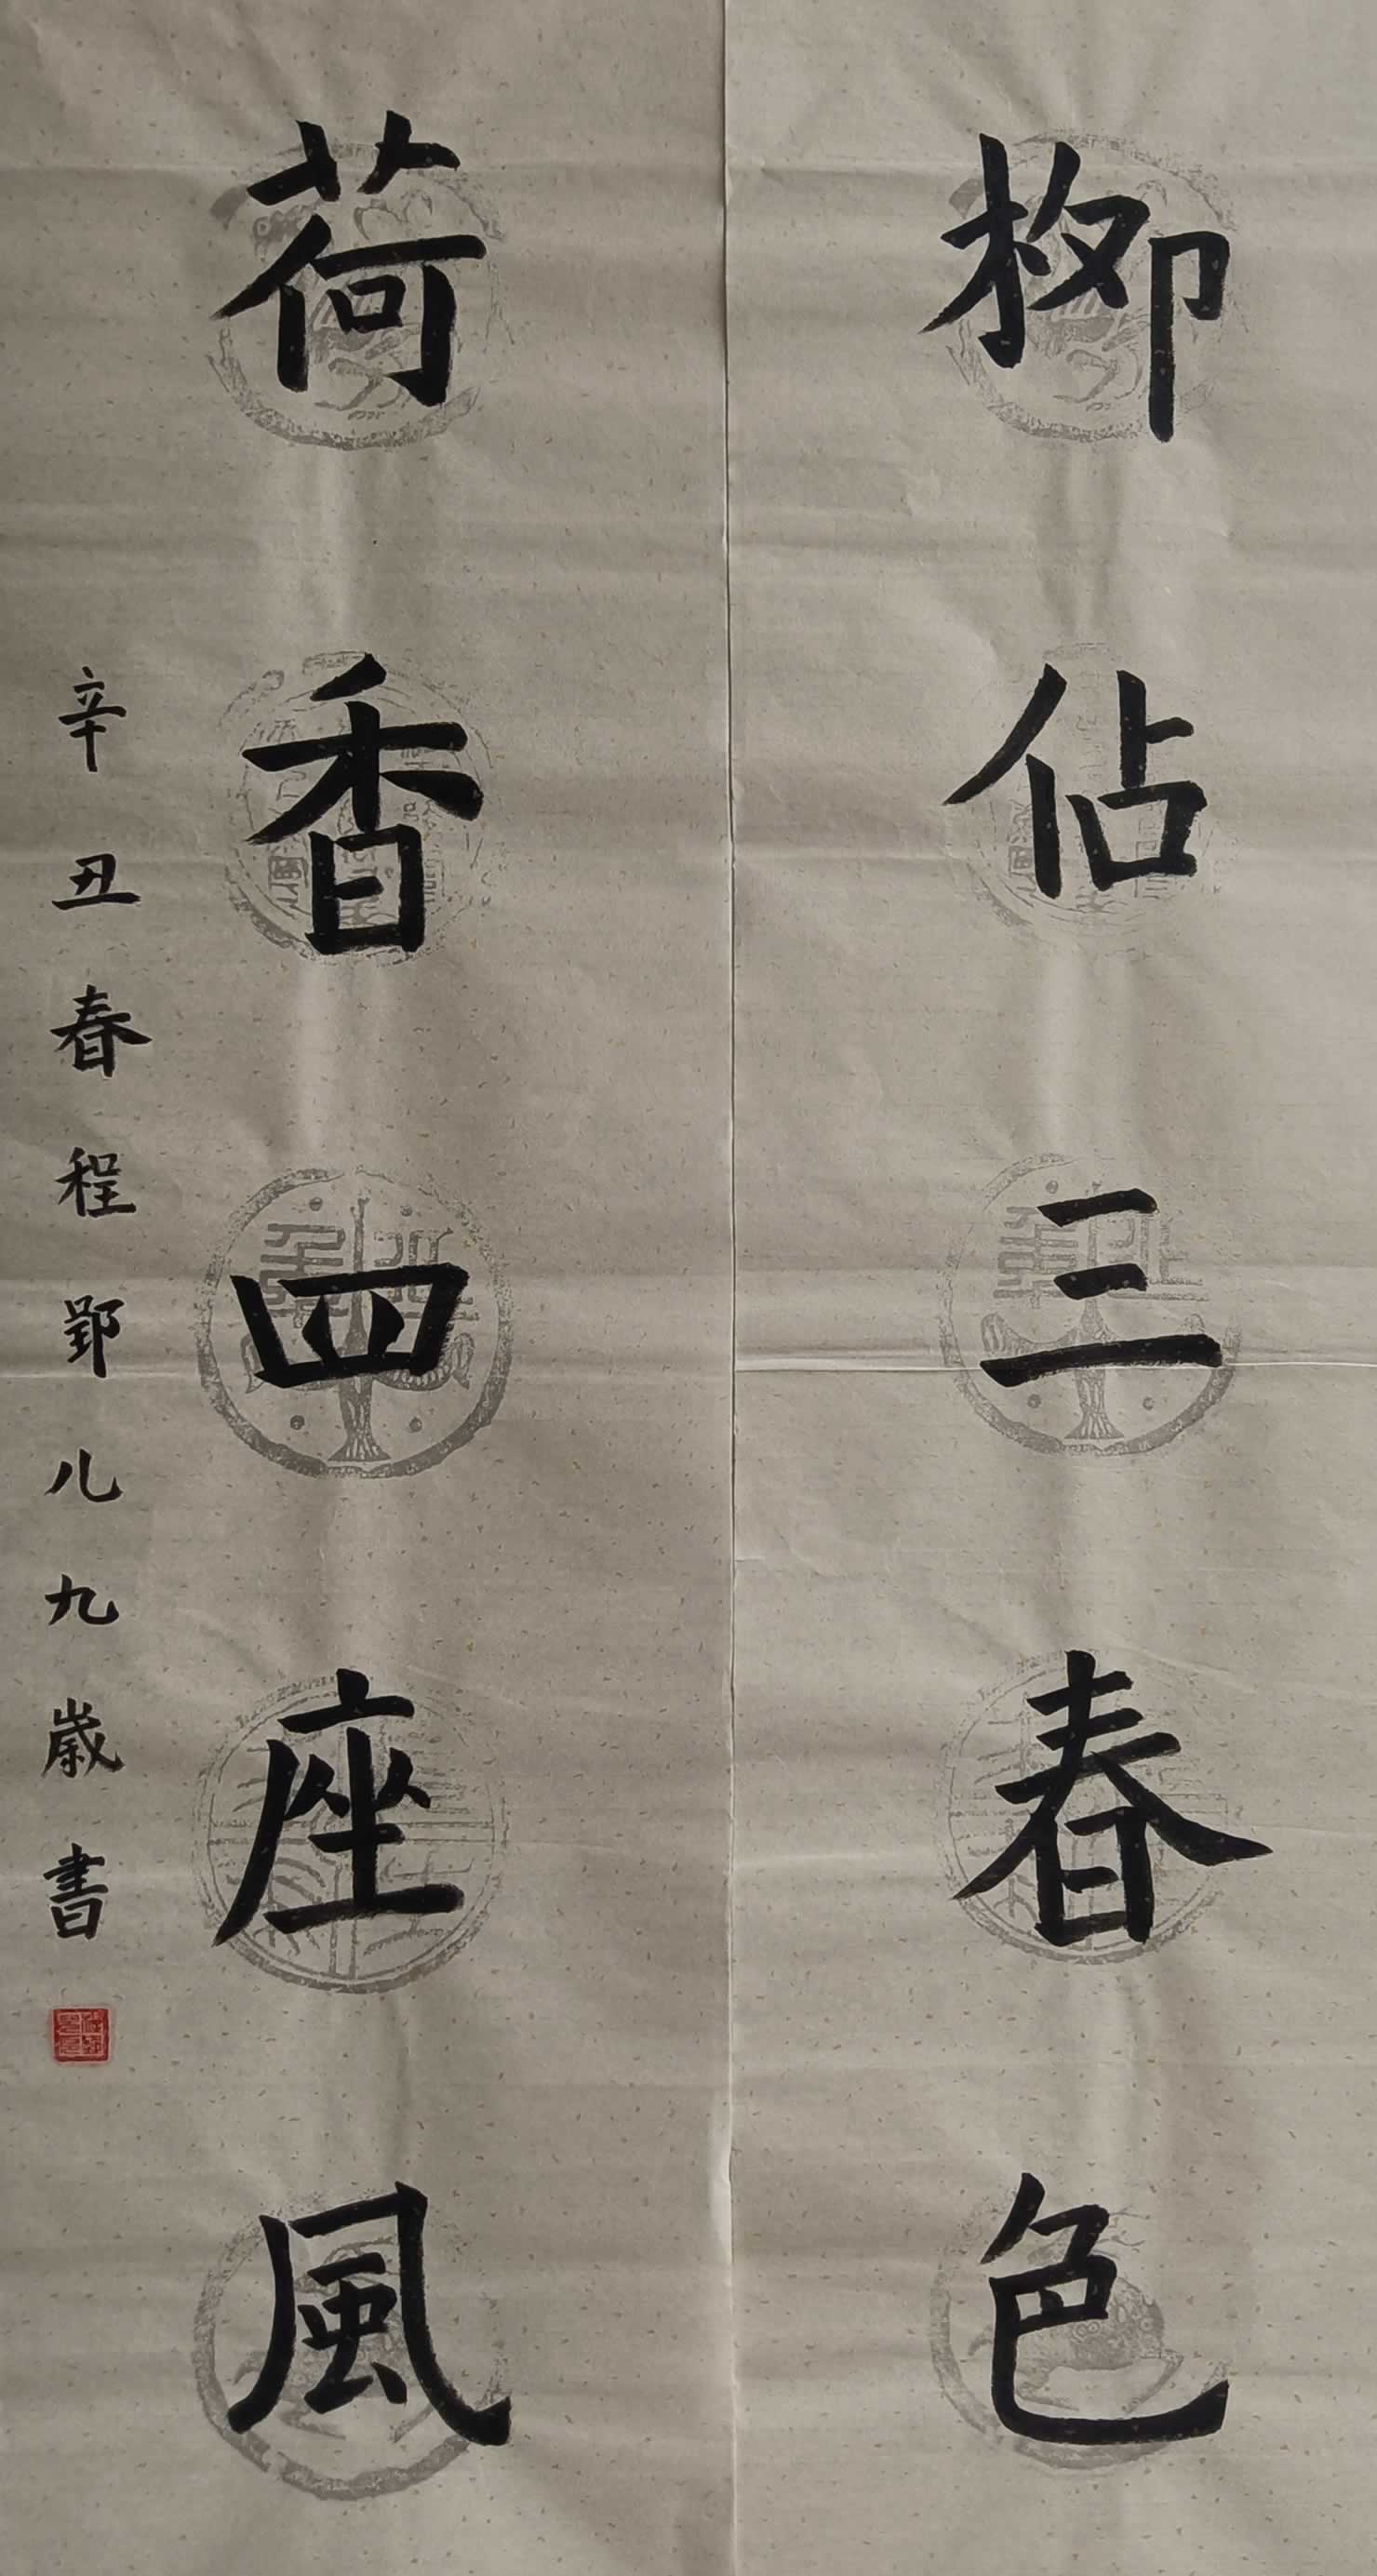 柳佔三春色
荷香四座風
辛丑春程郢儿九歲書